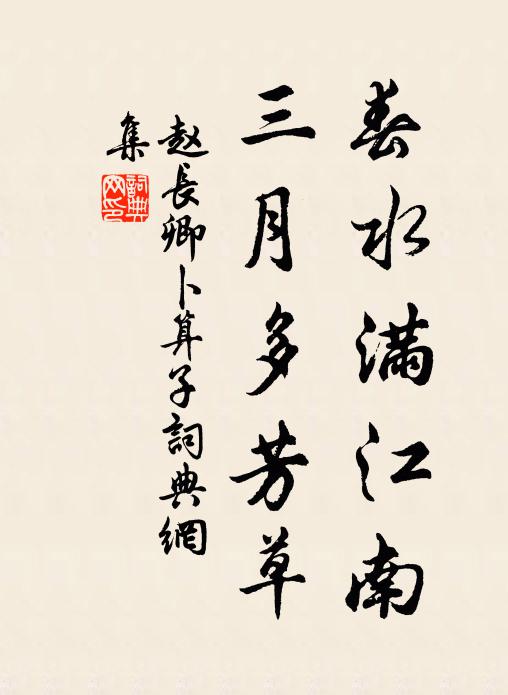 春水满江南
三月多芳草
赵長卿卜算子詞典網
集
詞典
网印